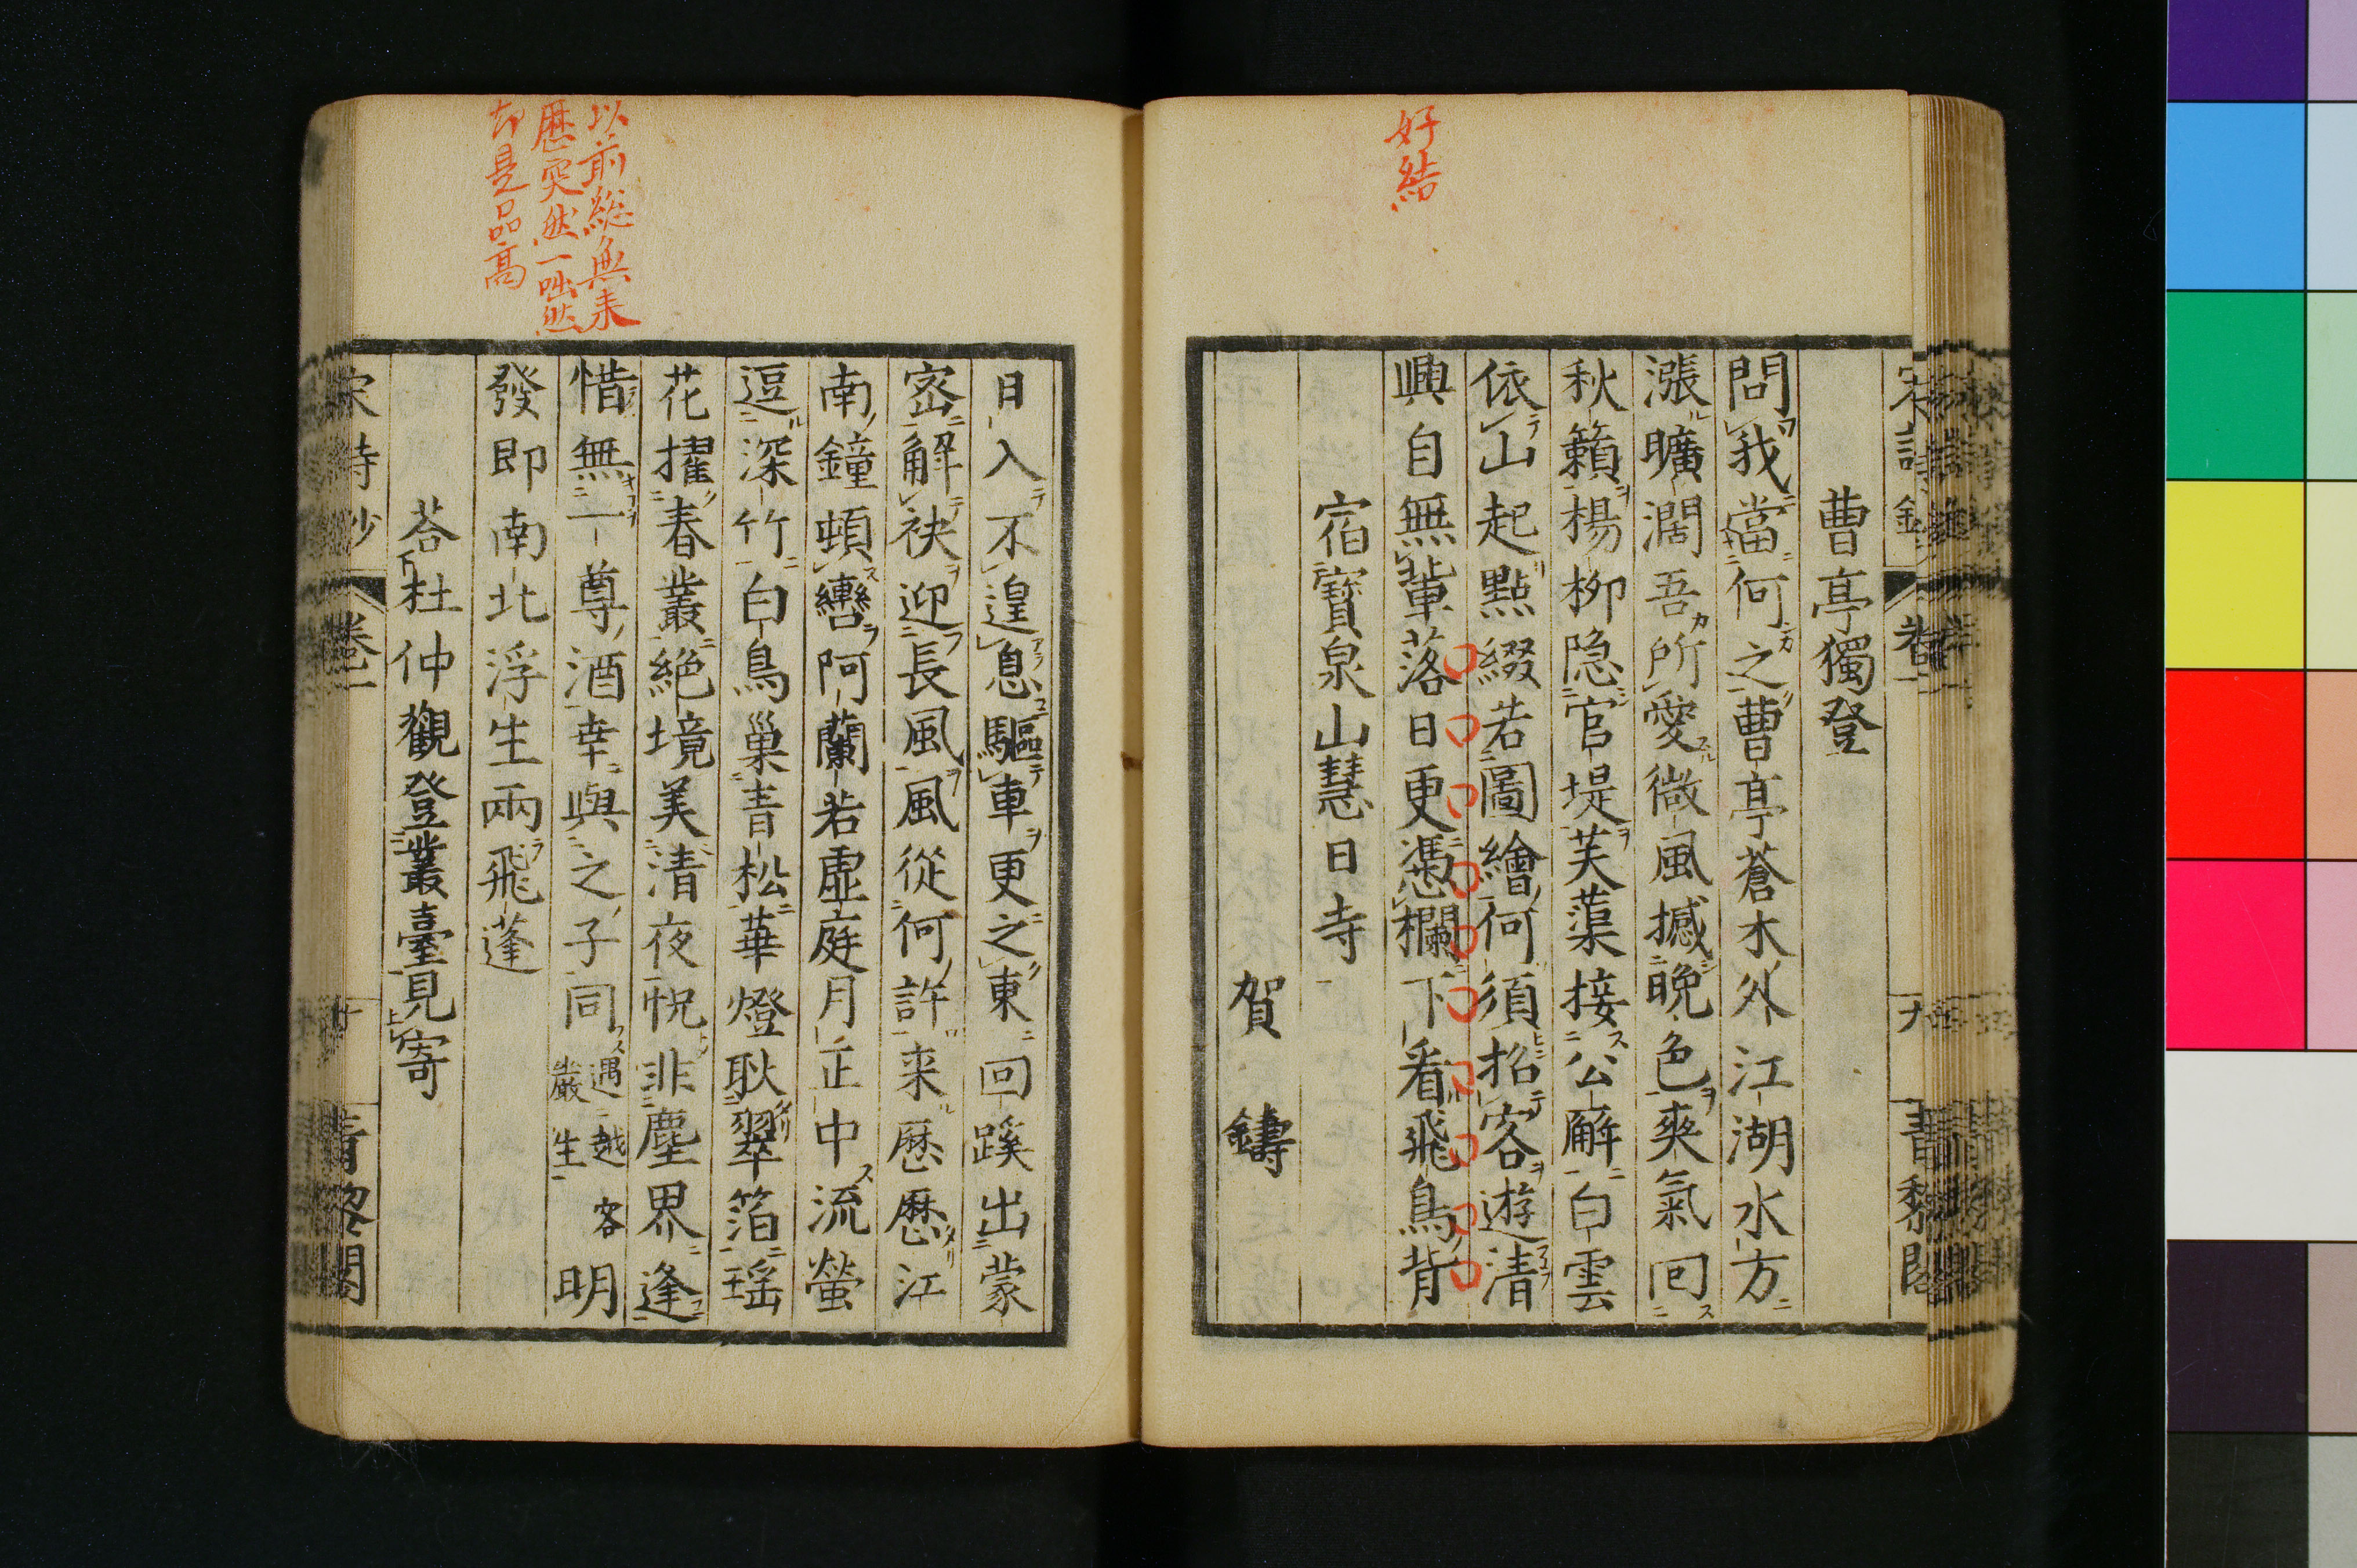 好結
曹亭獨登
問我當何之曹亭蒼木外江湖水方
漲曠濶吾所愛微風撼晩色爽氣回
秋籟楊柳隠官堤芙蕖接公廨白雲
依山起點綴若圖繪何須招客遊清
興自無輩落日更憑欄下看飛鳥背
宿寶泉山慧日寺
賀鑄
以前總無来
歴突然一咄然
却是品髙
日入不遑息驅車更之東回蹊出蒙
密解袂迎長風風從何許来歴歴江
南鐘頓轡阿蘭若虛庭月正中流螢
逗深竹白鳥巢青松華燈耿翠箔瑶
花擢春叢絶境美清夜怳非塵界逢
惜無一尊酒幸與之子同遇越客巖生明
發即南北浮生兩飛蓬
荅杜仲觀登叢臺見寄
宋詩鈔
卷一
青黎閣